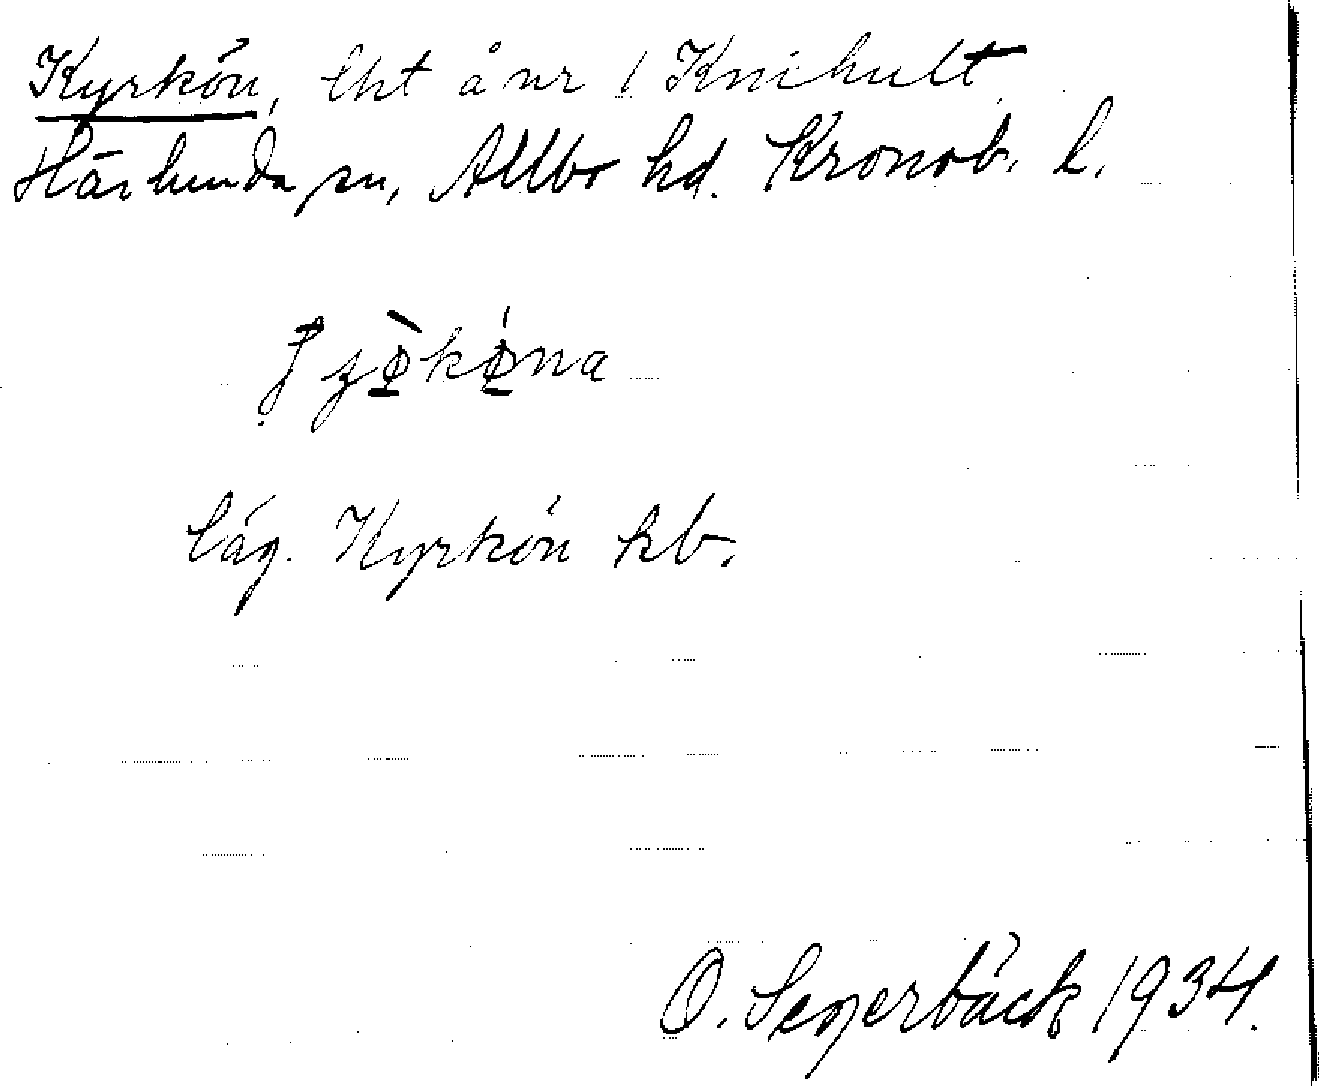 Kyrkön, lht å nr 1 Knihult
Härlunda sn, Allbo hd. Kronob. l.
låg. Kyrkön kb.
O. Segerbäck 1934.